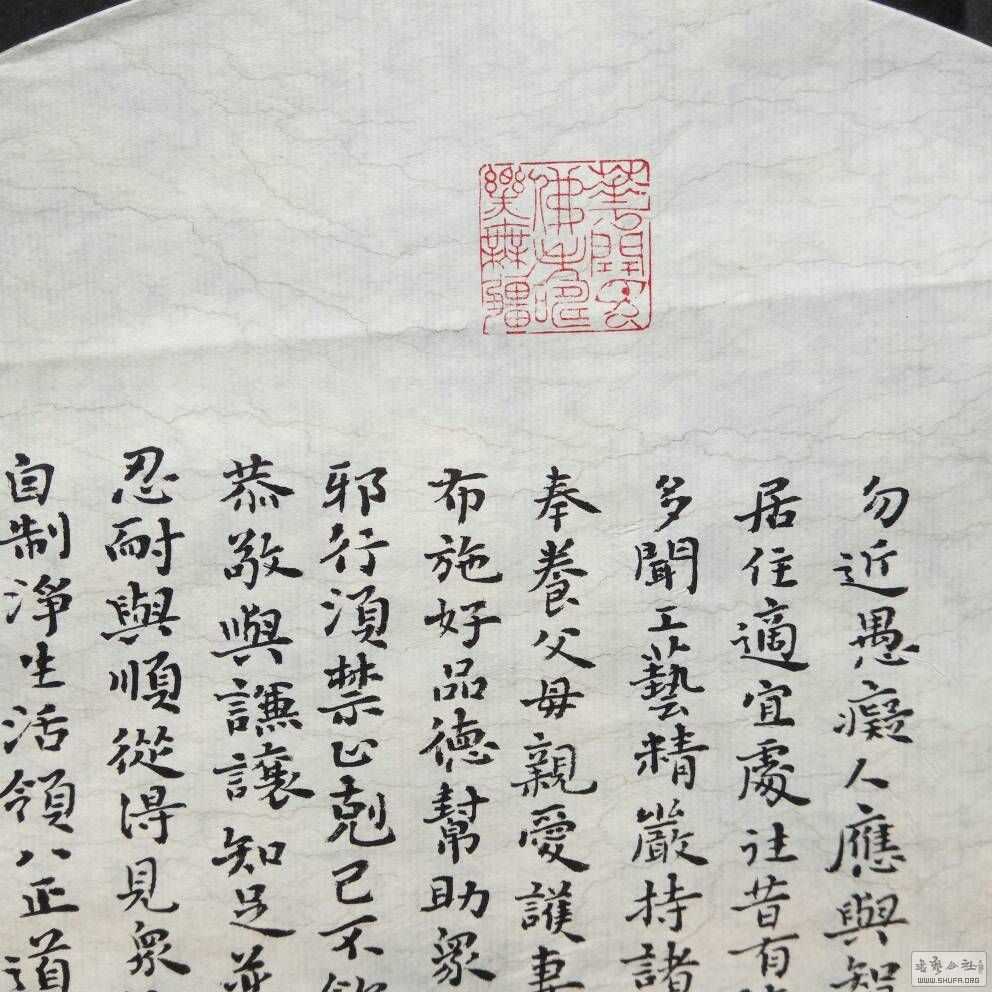 華開見
佛
樂無疆
勿近愚癡人應與智
居住適宜處往昔有
多聞工藝精嚴持諸
奉養父母親愛護妻
布施好品德幫助眾
邪行須禁止剋己不飲
恭敬與謙讓知足並
忍耐與順從得見眾
自制淨生活領八正道
書藝公社
WWW.SHUFA.ORG